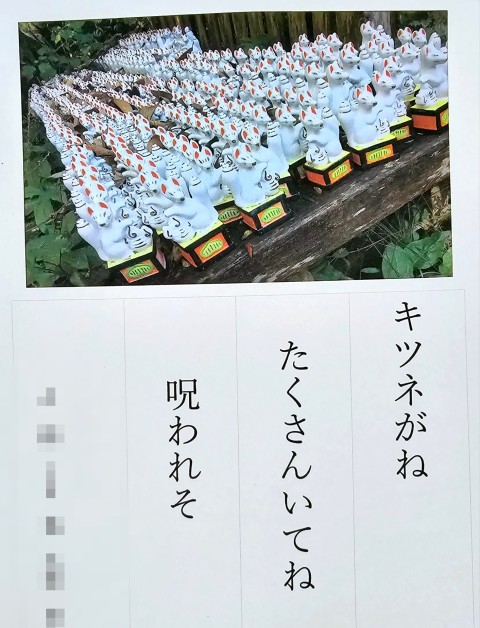 キツネがね
たくさんいてね
呪われそ